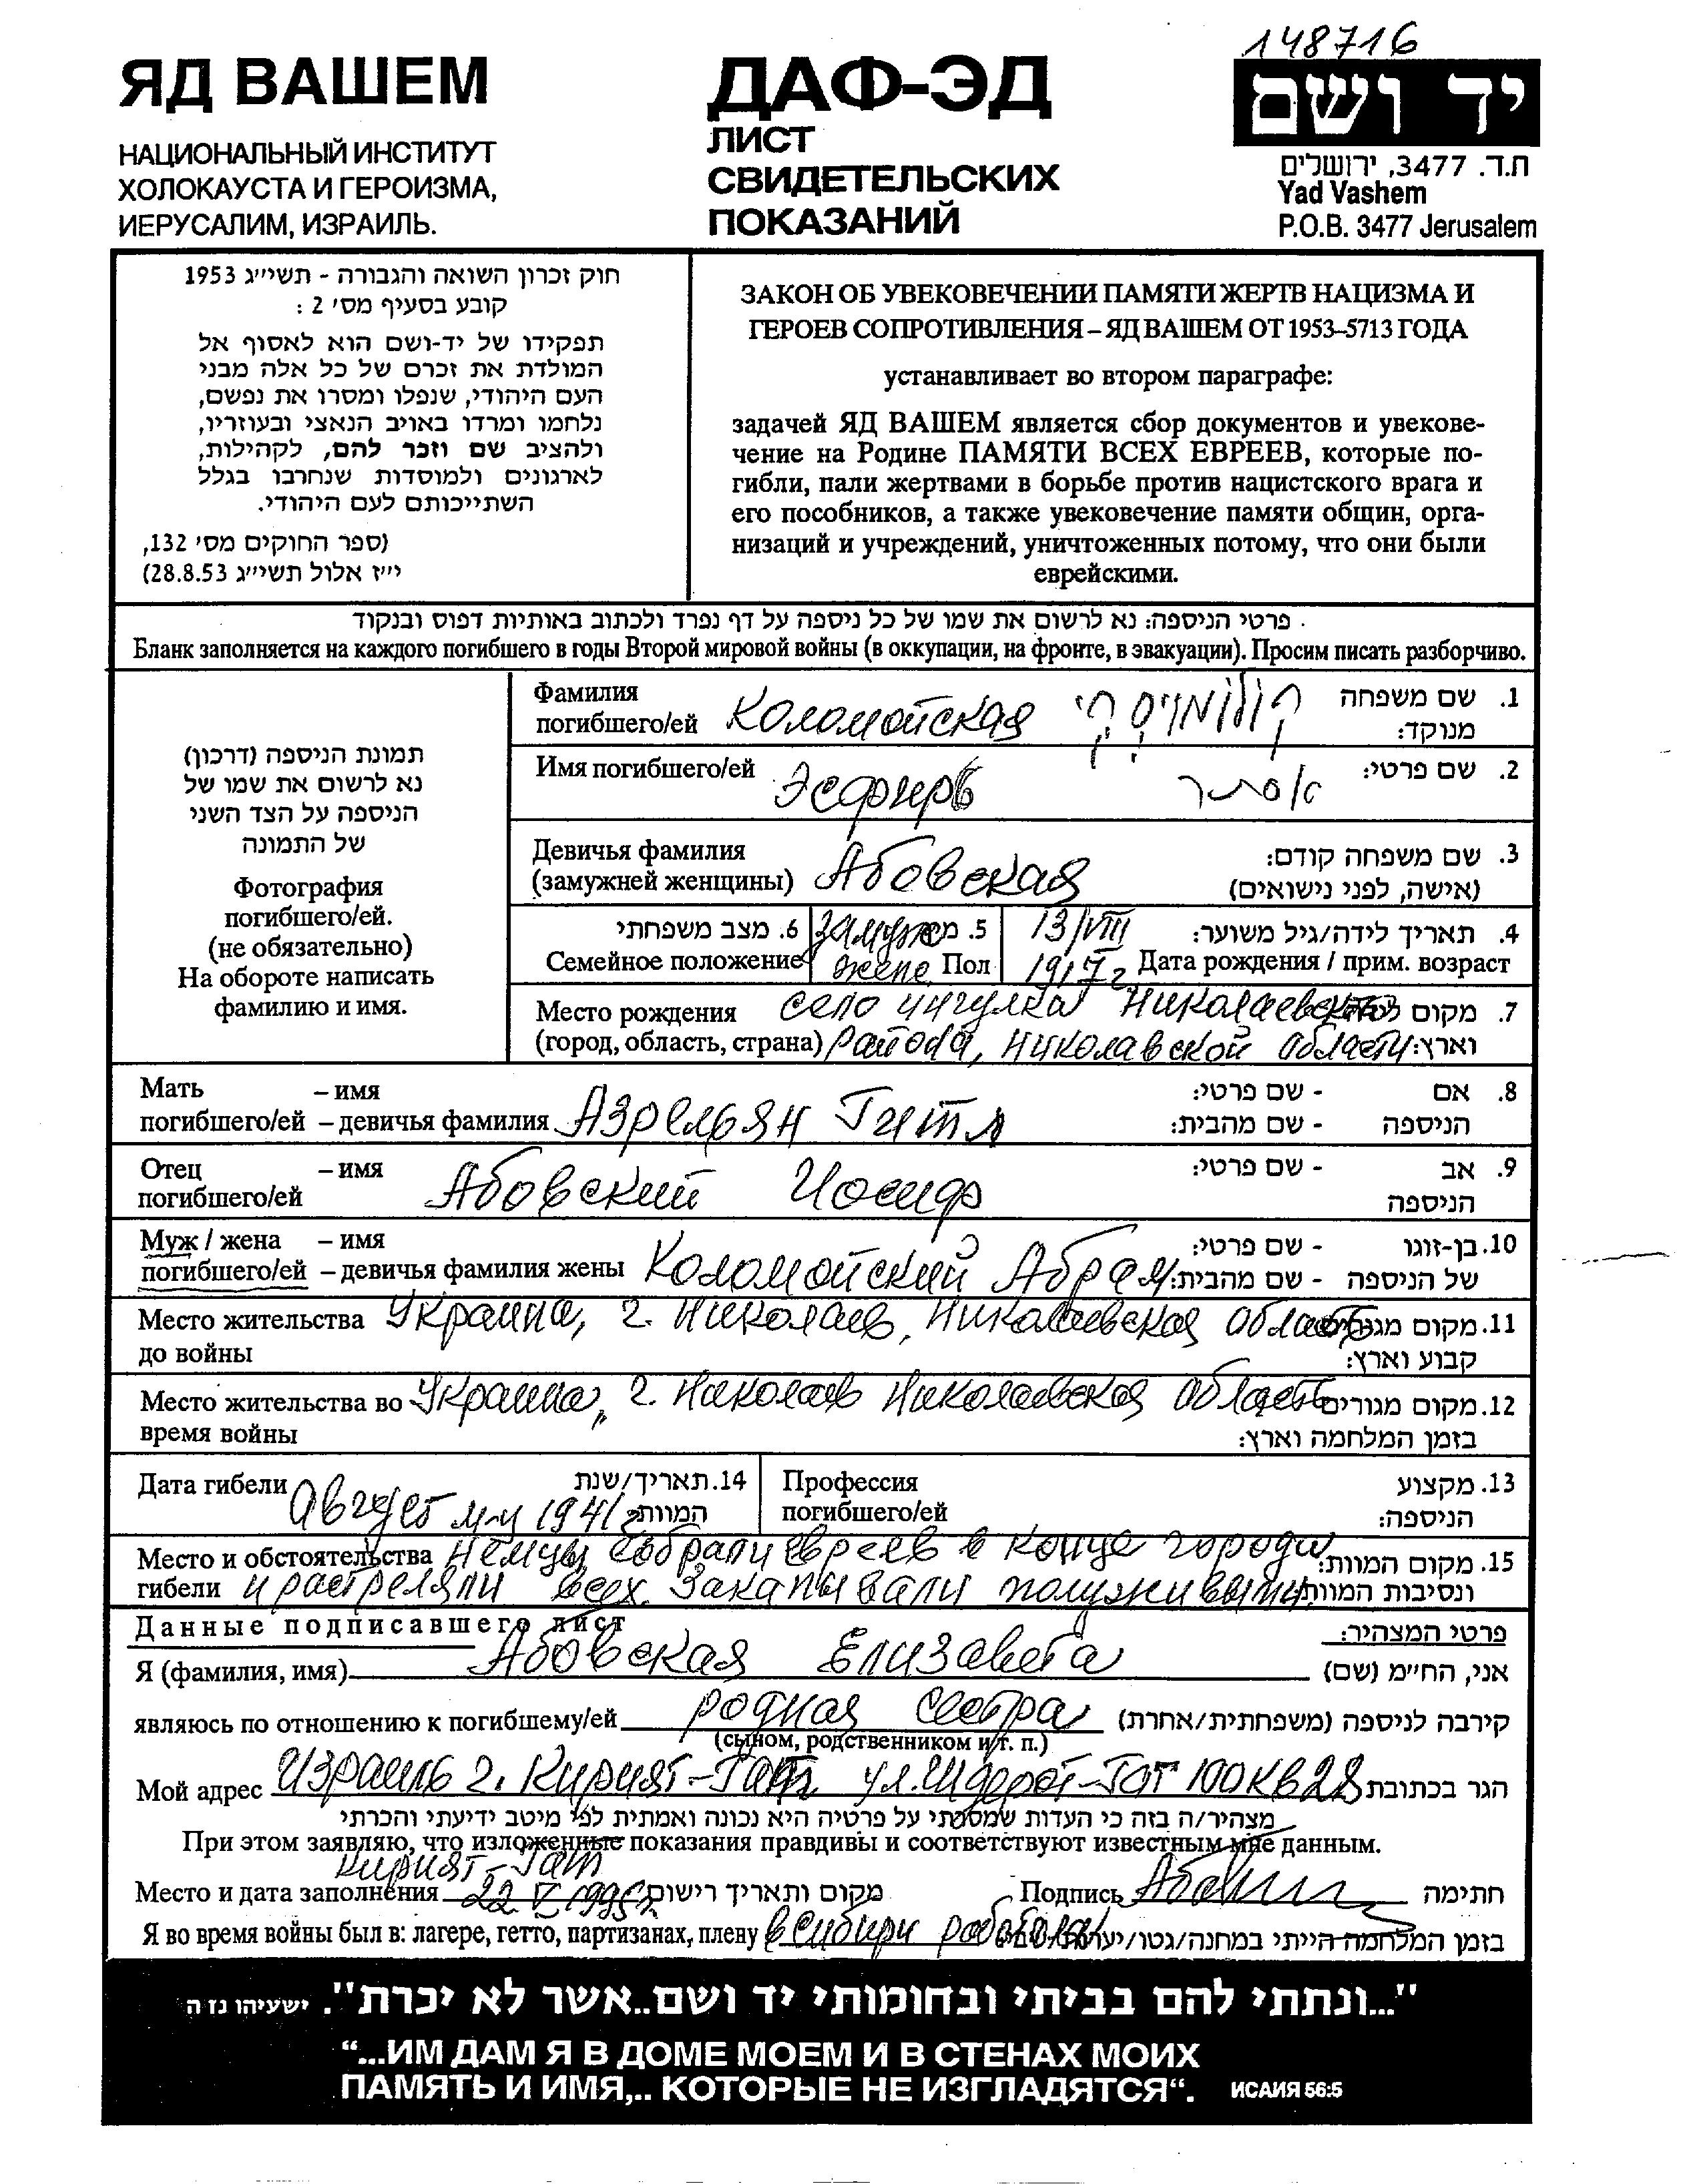 148716
ЯД ВАШЕМ
НАЦИОНАЛЬНЫЙ ИНСТИТУТ
ХОЛОКАУСТА И ГЕРОИЗМА,
ИЕРУСАЛИМ, ИЗРАИЛЬ.
ДАФ-ЭД
ЛИСТ
СВИДЕТЕЛЬСКИХ
ПОКАЗАНИЙ
יד ושם
ת.ד. 3477, ירושלים
Yad Vashem
P.O.B. 3477 Jerusalem
חוק זכרון השואה והגבורה - תשי״ג 1953
קובע בסעיף מס׳ 2 :
תפקידו של יד-ושם הוא לאסוף אל
המולדת את זכרם של כל אלה מבני
העם היהודי, שנפלו ומסרו את נפשם,
נלחמו ומרדו באויב הנאצי ובעוזריו,
ולהציב שם וזכר להם, לקהילות,
לארגונים ולמוסדות שנחרבו בגלל
השתייכותם לעם היהודי.
(ספר החוקים מס׳ 132,
י״ז אלול תשי״ג 28.8.53)
ЗАКОН ОБ УВЕКОВЕЧЕНИИ ПАМЯТИ ЖЕРТВ НАЦИЗМА И
ГЕРОЕВ СОПРОТИВЛЕНИЯ – ЯД ВАШЕМ ОТ 1953–5713 ГОДА
устанавливает во втором параграфе:
задачей ЯД ВАШЕМ является сбор документов и увекове-
чение на Родине ПАМЯТИ ВСЕХ ЕВРЕЕВ, которые по-
гибли, пали жертвами в борьбе против нацистского врага и
его пособников, а также увековечение памяти общин, орга-
низаций и учреждений, уничтоженных потому, что они были
еврейскими.
פרטי הניספה: נא לרשום את שמו של כל ניספה על דף נפרד ולכתוב באותיות דפוס ובנקוד
Бланк заполняется на каждого погибшего в годы Второй мировой войны (в оккупации, на фронте, в эвакуации). Просим писать разборчиво.
תמונת הניספה (דרכון)
נא לרשום את שמו של
הניספה על הצד השני
של התמונה
Фотография
погибшего/ей.
(не обязательно)
На обороте написать
фамилию и имя.
Фамилия
погибшего/ей Коломойская קולומויסקי
1. שם משפחה
מנוקד:
Имя погибшего/ей Эсфирь אסתר 2. שם פרטי:
Девичья фамилия
(замужней женщины) Абовская
3. שם משפחה קודם:
(אישה, לפני נישואים)
6. מצב משפחתי
Семейное положение замужем
5. מין
Пол жен.
13/VIII
1917г
4. תאריך לידה/גיל משוער:
Дата рождения / прим. возраст
Место рождения село Ингулка Николаевского 7. מקום לידה
(город, область, страна) района, Николавской области וארץ:
Мать – имя 8. אם - שם פרטי:
погибшего/ей – девичья фамилия Азрельян Гитл הניספה - שם מהבית:
Отец – имя 9. אב - שם פרטי:
погибшего/ей Абовский Иосиф הניספה
Муж / жена – имя 10. בן-זוגו - שם פרטי:
погибшего/ей – девичья фамилия жены Коломойский Абрам של הניספה - שם מהבית:
Место жительства Украина, г. Николаев, Николаевская область 11. מקום מגורים
до войны קבוע וארץ:
Место жительства во Украина, г. Николаев Николаевская область 12. מקום מגורים
время войны בזמן המלחמה וארץ:
Дата гибели Август м-ц 1941г 14. תאריך/שנת
המוות:
Профессия
погибшего/ей
13. מקצוע
הניספה:
Место и обстоятельства Немцы собрали евреев в конце города 15. מקום המוות:
гибели и растреляли всех. Закапывали полуживыми ונסיבות המוות:
Данные подписавшего лист פרטי המצהיר:
Я (фамилия, имя) Абовская Елизавета אני, החי״מ (שם)
являюсь по отношению к погибшему/ей родная сестра קירבה לניספה (משפחתית/אחרת)
(сыном, родственником и т. п.)
Мой адрес Израиль г. Кирият-Гат ул. Шдерот-Гат 100 кв 28 הגר בכתובת
מצהיר/ה בזה כי העדות שמסרתי על פרטיה היא נכונה ואמתית לפי מיטב ידיעתי והכרתי
При этом заявляю, что изложенные показания правдивы и соответствуют известным мне данным.
Кирият-Гат
Место и дата заполнения 22 V 1995г. מקום ותאריך רישום Подпись חתימה
Я во время войны был в: лагере, гетто, партизанах, плену в Сибири работала בזמן המלחמה הייתי במחנה/גטו/יערות
"...ונתתי להם בביתי ובחומותי יד ושם..אשר לא יכרת". ישעיהו נז ה
“...ИМ ДАМ Я В ДОМЕ МОЕМ И В СТЕНАХ МОИХ
ПАМЯТЬ И ИМЯ,.. КОТОРЫЕ НЕ ИЗГЛАДЯТСЯ“. ИСАИЯ 56:5